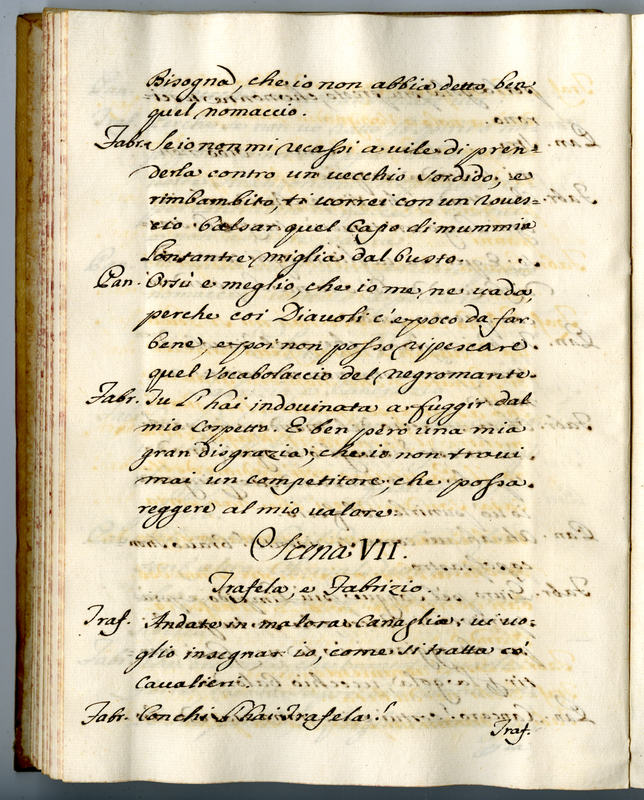 Bisogna, che io non abbia detto ben
quel nomaccio.
Fabr. Se io non mi recassi a vile di pren=
derla contro un vecchio sordido, e
rimbambito, ti vorrei con un roves=
cio balsar quel Capo di mummia
lontan tre miglia dal busto.
Pan. Orsù e meglio, che io me, ne vada,
perche coi Diavoli c'e poco da far
bene, e poi non posso ripescare
quel Vocabolaccio del negromante.
Fabr. Tu l'hai indovinata a fuggir dal
mio cospetto. E ben però una mia
gran disgrazia, che io non trovi
mai un competitore, che possa
reggere al mio valore.
Scena VII.
Trafela, e Fabrizio
Traf. Andate in malora Canaglia: vi vo=
glio insegnar io, come si tratta co'
Cavalieri
Fabr. Con chi l'hai Trafela!
Traf.